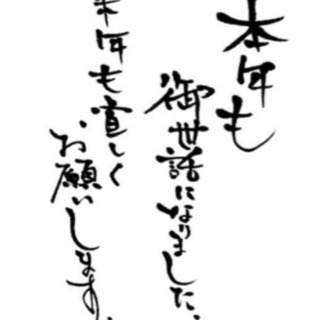 本年も
御世話になりました、
来年も宜しく
お願いします